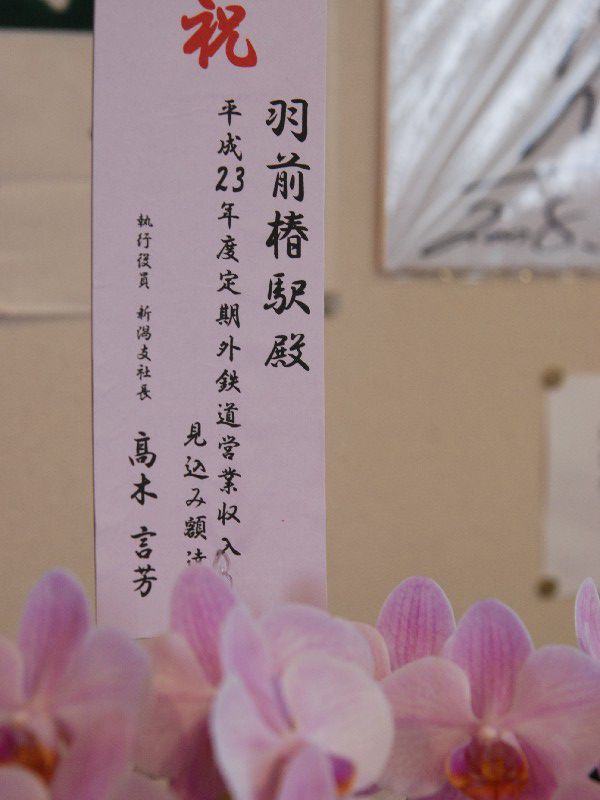 祝
羽前椿駅殿
平成23年度定期外鉄道営業収入
見込み額達
執行役員 新潟支社長 髙木言芳
2008.